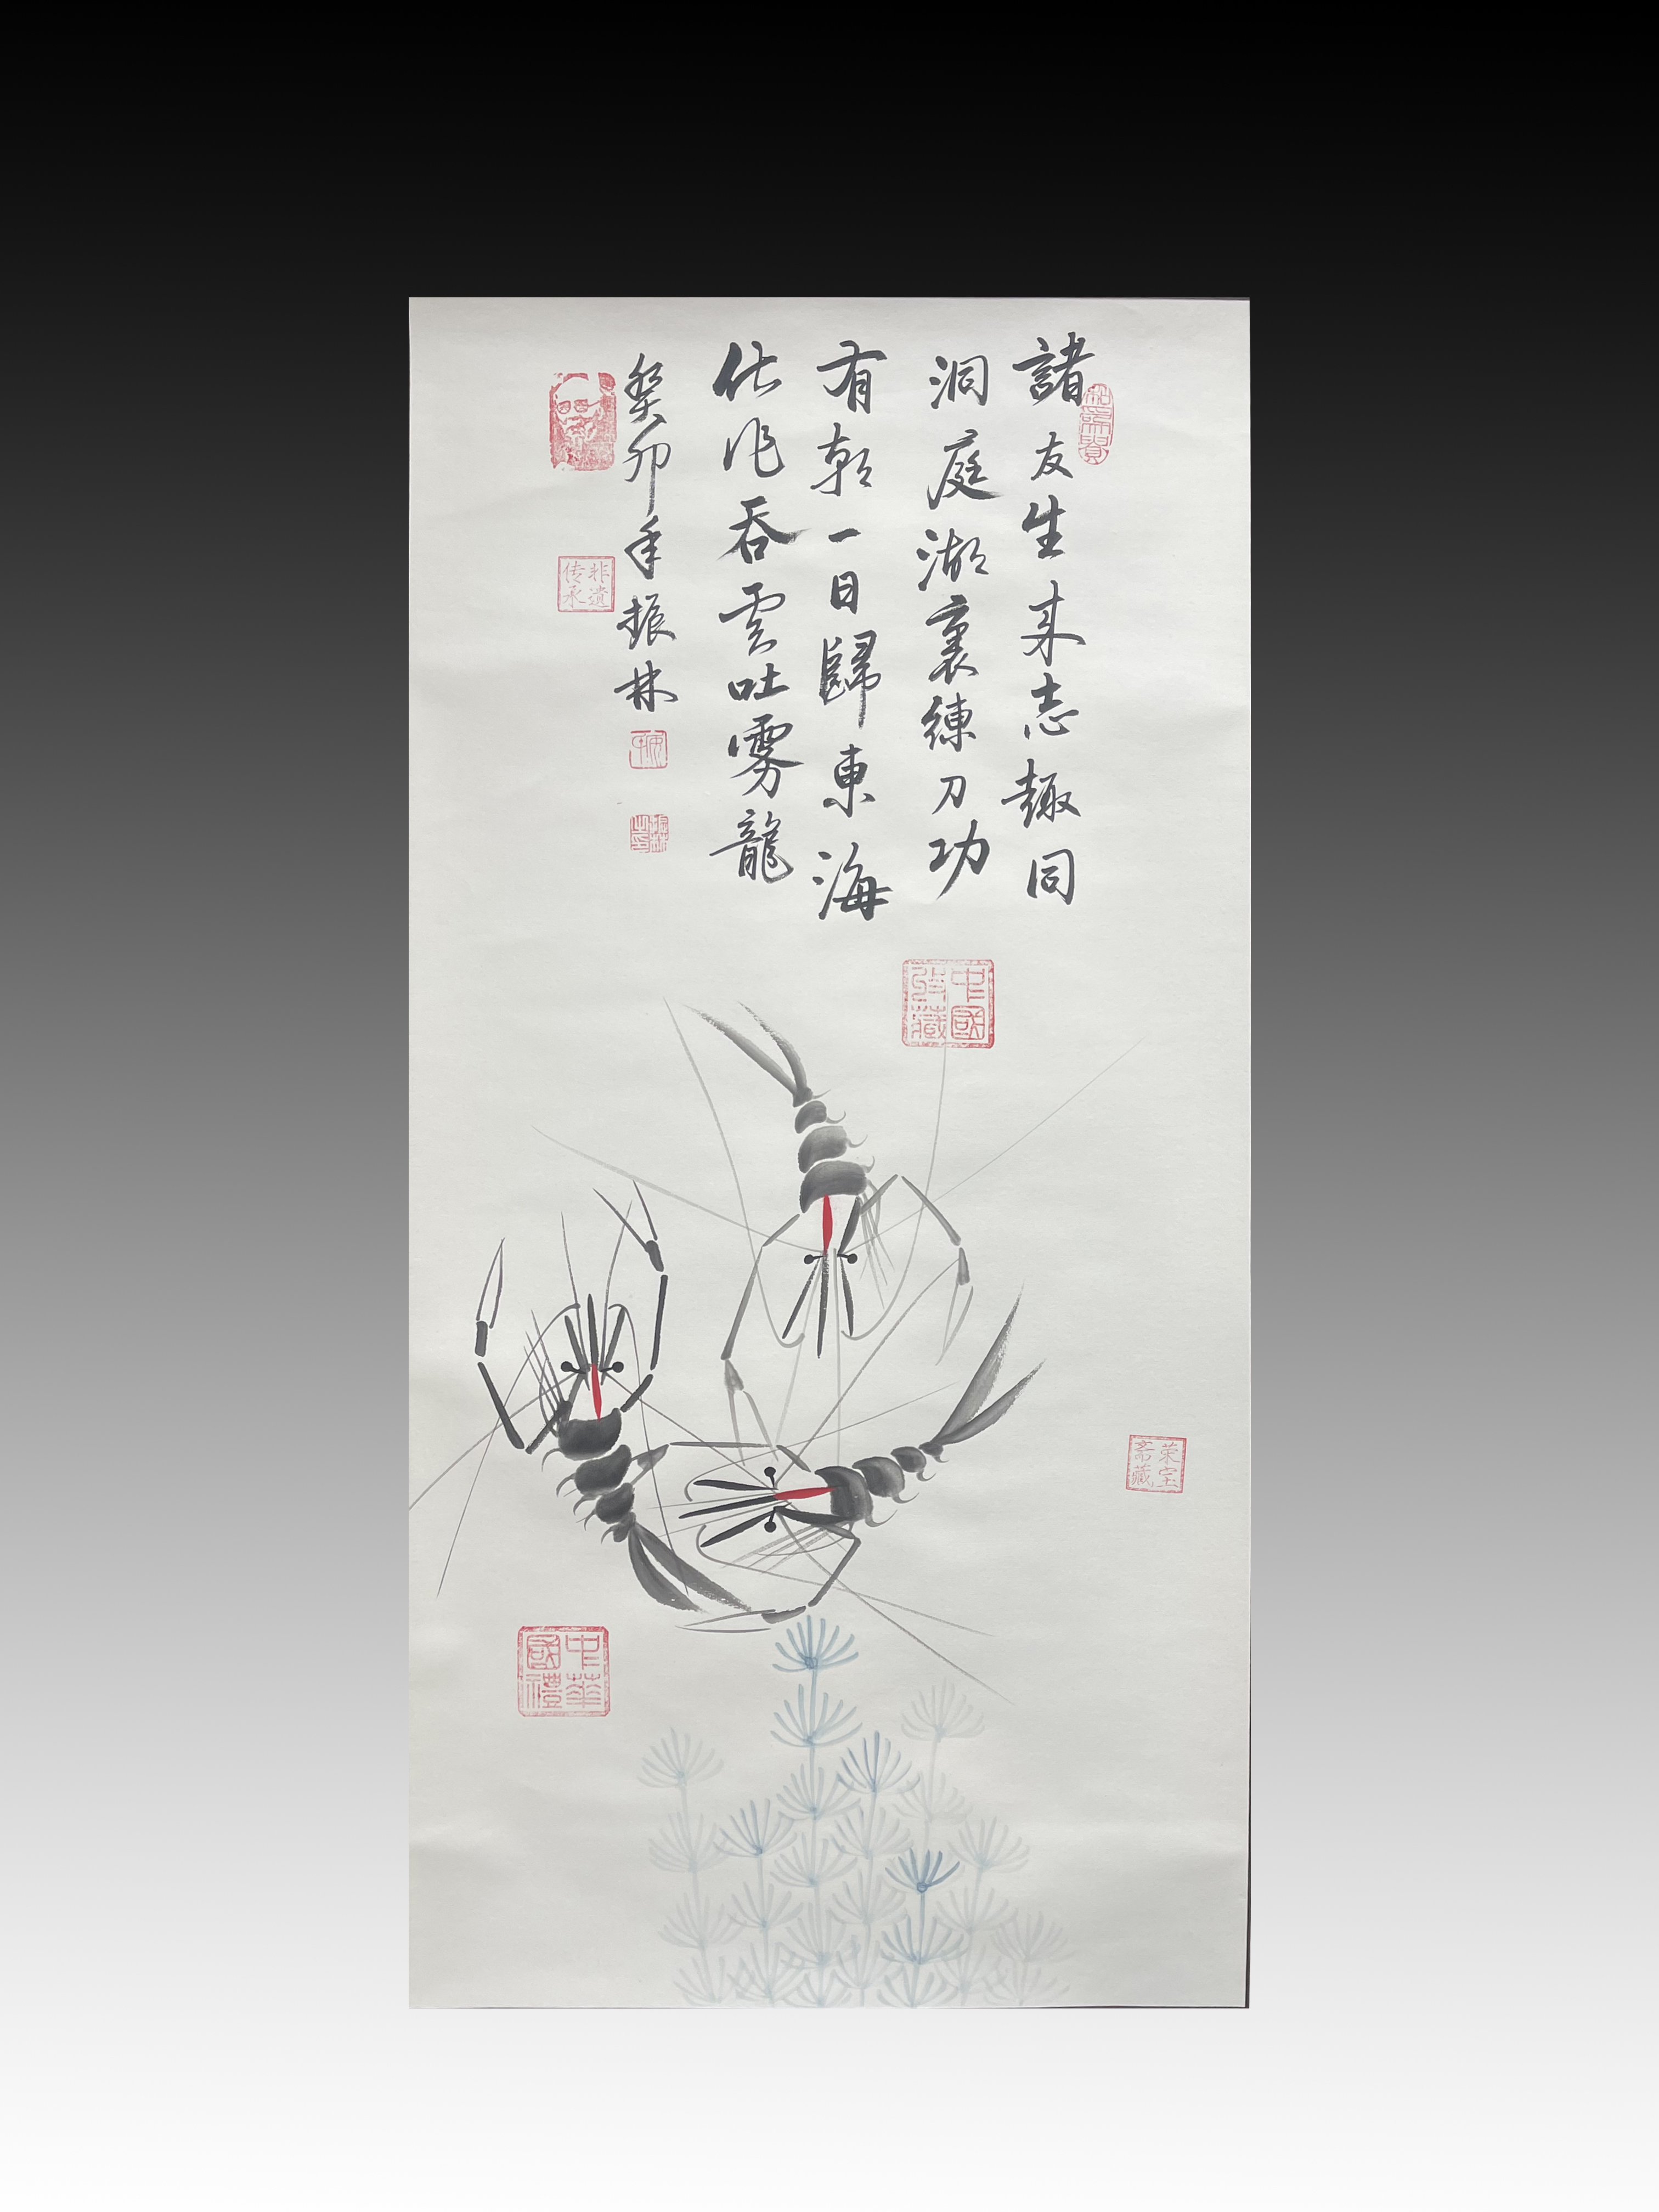 諸友生来志趣同
洞庭湖裏練刀功
有朝一日歸東海
化作吞雲吐雾龍
癸卯年振林
非遺
传承
中國
珍藏
荣宝
斋藏
中華
國禮